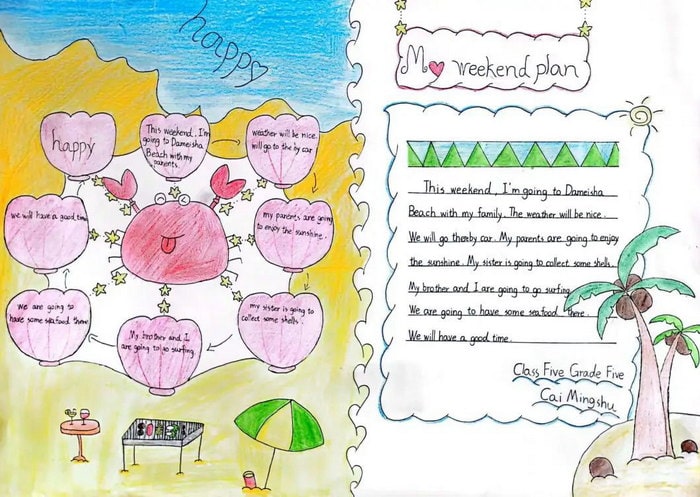 happy
happy
This weekend, I'm
going to Dameisha
Beach with my
parents.
weather will be nice.
will go to the by car
my parents are going
to enjoy the sunshine.
my sister is going to
collect some shells.
My brother and I
are going to go surfing.
we are going to
have some seafood there
we will have a good time
My weekend plan
This weekend, I'm going to Dameisha
Beach with my family. The weather will be nice.
We will go thereby car. My parents are going to enjoy
the sunshine. My sister is going to collect some shells.
My brother and I are going to go surfing.
We are going to have some seafood there.
We will have a good time.
Class Five Grade Five
Cai Mingshu